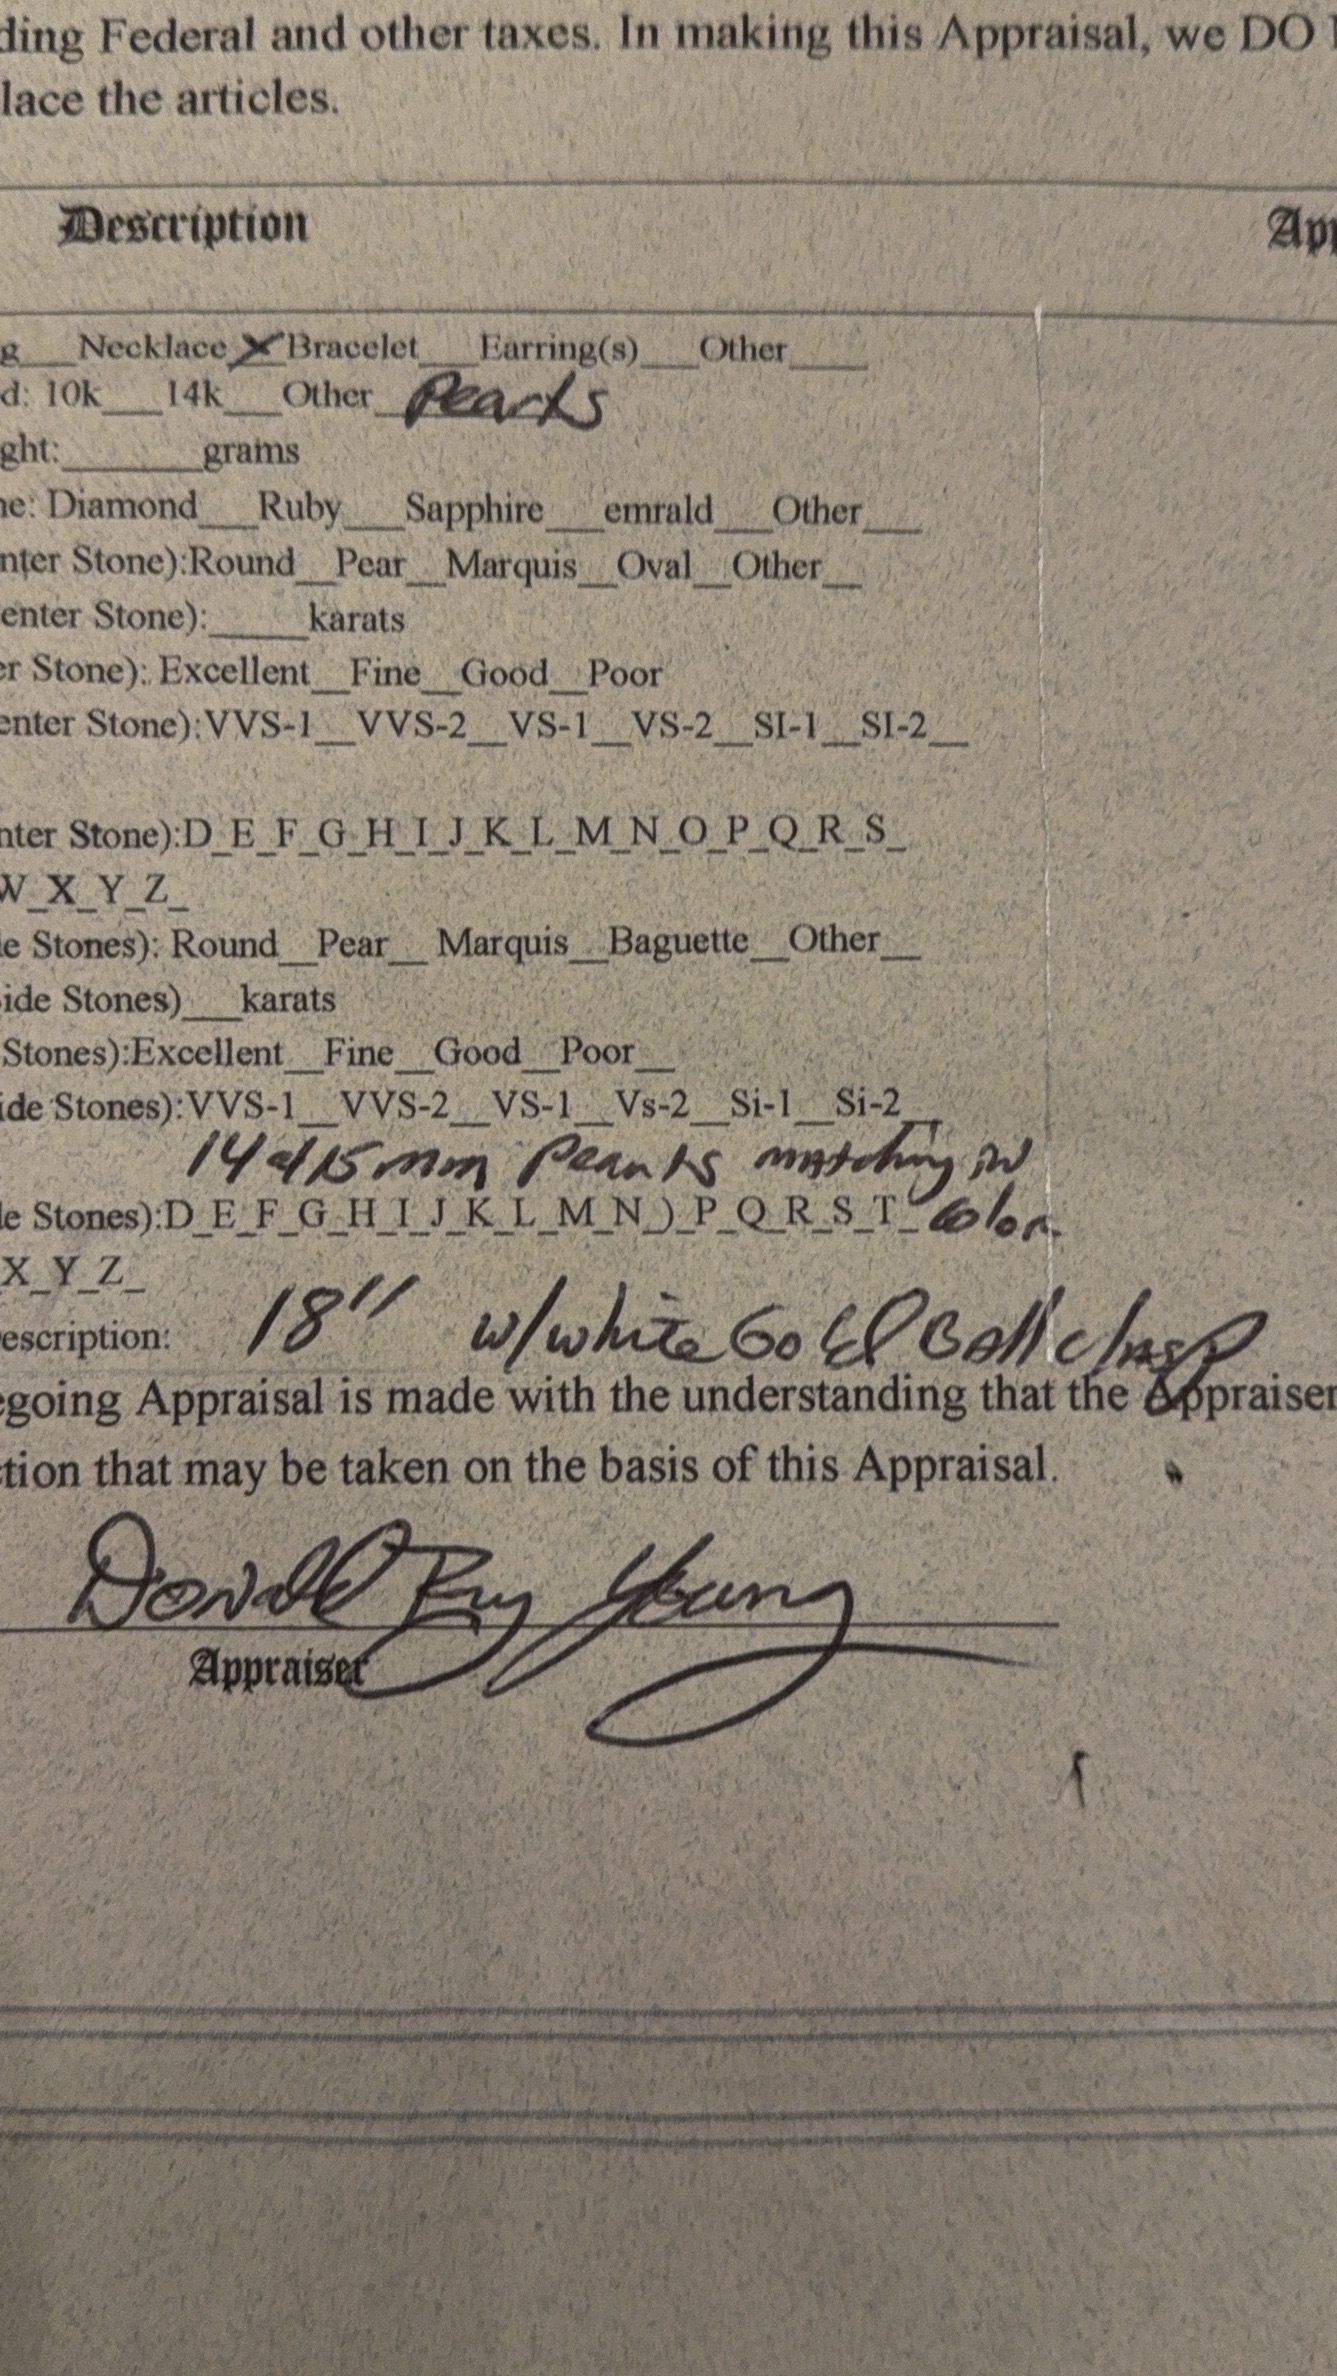 ding Federal and other taxes. In making this Appraisal, we DO
lace the articles.
Description App
g___Necklace X Bracelet___Earring(s)___Other____
d: 10k___14k___Other Pearls
ght:_______grams
ne: Diamond___Ruby___Sapphire___emrald___Other___
nter Stone):Round__Pear__Marquis__Oval__Other__
enter Stone):_____karats
er Stone): Excellent__Fine__Good__Poor
enter Stone):VVS-1__VVS-2__VS-1__VS-2__SI-1__SI-2__
nter Stone):D_E_F_G_H_I_J_K_L_M_N_O_P_Q_R_S_
W_X_Y_Z_
le Stones): Round__Pear__ Marquis__Baguette__Other__
ide Stones)___karats
Stones):Excellent__Fine__Good__Poor__
ide Stones):VVS-1__VVS-2__VS-1__Vs-2__Si-1__Si-2__
15mm Pearls matching in
le Stones):D_E_F_G_H_I_J_K_L_M_N_)_P_Q_R_S_T_ Color.
X_Y_Z_
escription: 18" w/white Gold Ball clasp
egoing Appraisal is made with the understanding that the Appraiser
ction that may be taken on the basis of this Appraisal.
Donald Ray Young
Appraiser